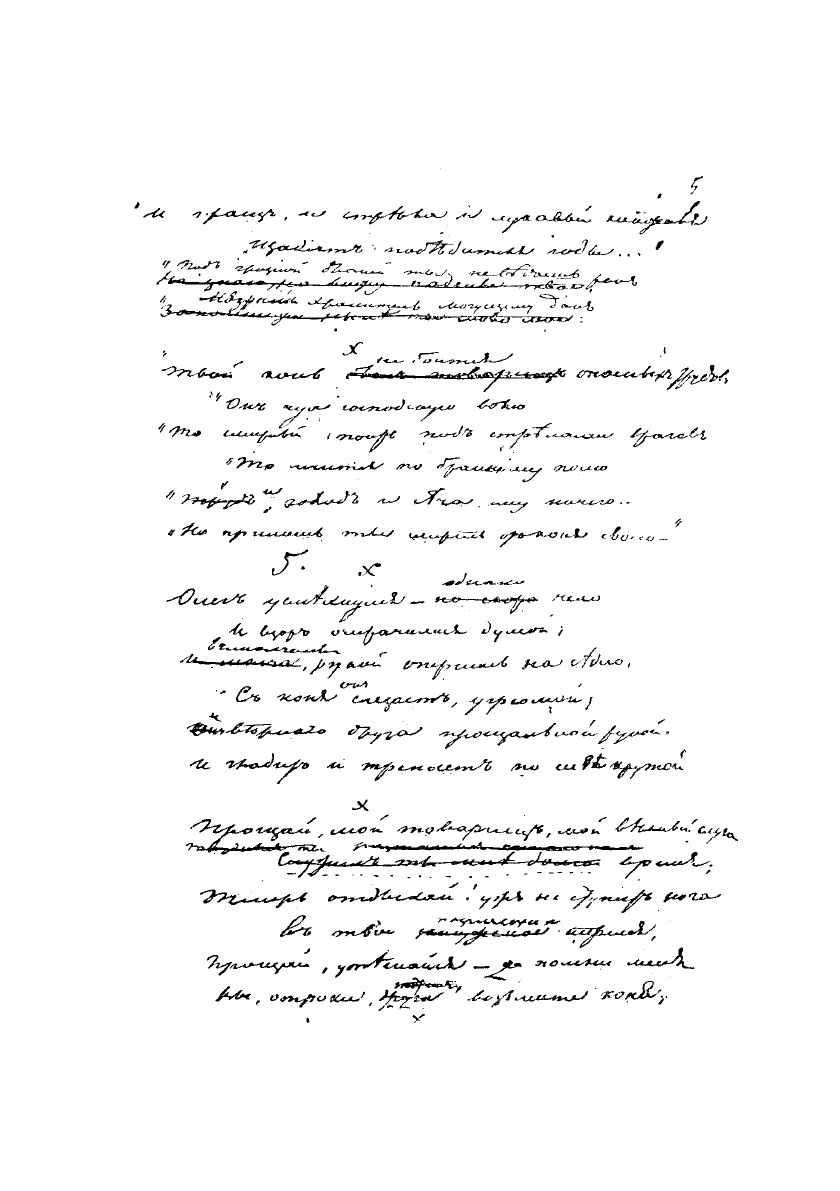 5
"И пращъ, и стрѣла и лукавый кинжалъ
Щадятъ побѣдителя годы..."
"Подъ грозной бронёй ты не вѣдаешь ранъ
"Незримый хранитель могущему данъ
х
не боится
"Твой конь опасныхъ трудовъ,
"Онъ чуя господскую волю
"То смирный стоитъ подъ стрѣлами враговъ
"То мчится по бранному полю
" и холодъ и сѣча ему ничего..
"Но примешь ты смерть отъ коня своего—"
5. х
однако
Олегъ усмѣхнулся — но скоро чело
И взоръ омрачился думой;
въ молчаньи
рукой опершись на сѣдло,
Съ коня онъ слѣзаетъ, угрюмой;
И вѣрнаго друга прощальной рукой
И гладитъ и треплетъ по шеѣ крутой
х
Прощай, мой товарищъ, мой вѣрный слуга
время;
Теперь отдыхай! ужъ не ступитъ нога
Въ твое позлащенное стремя,
Прощай, утѣшайся — да помни меня
Вы, отроки, возьмите коня,
х